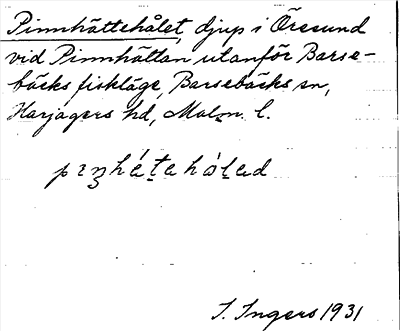 Pinnhättehålet, djup i Öresund
vid Pinnhättan utanför Barse-
bäcks fiskläge, Barsebäcks sn,
Harjagers hd, Malm. l.
pinhátahólad
I. Ingers 1931